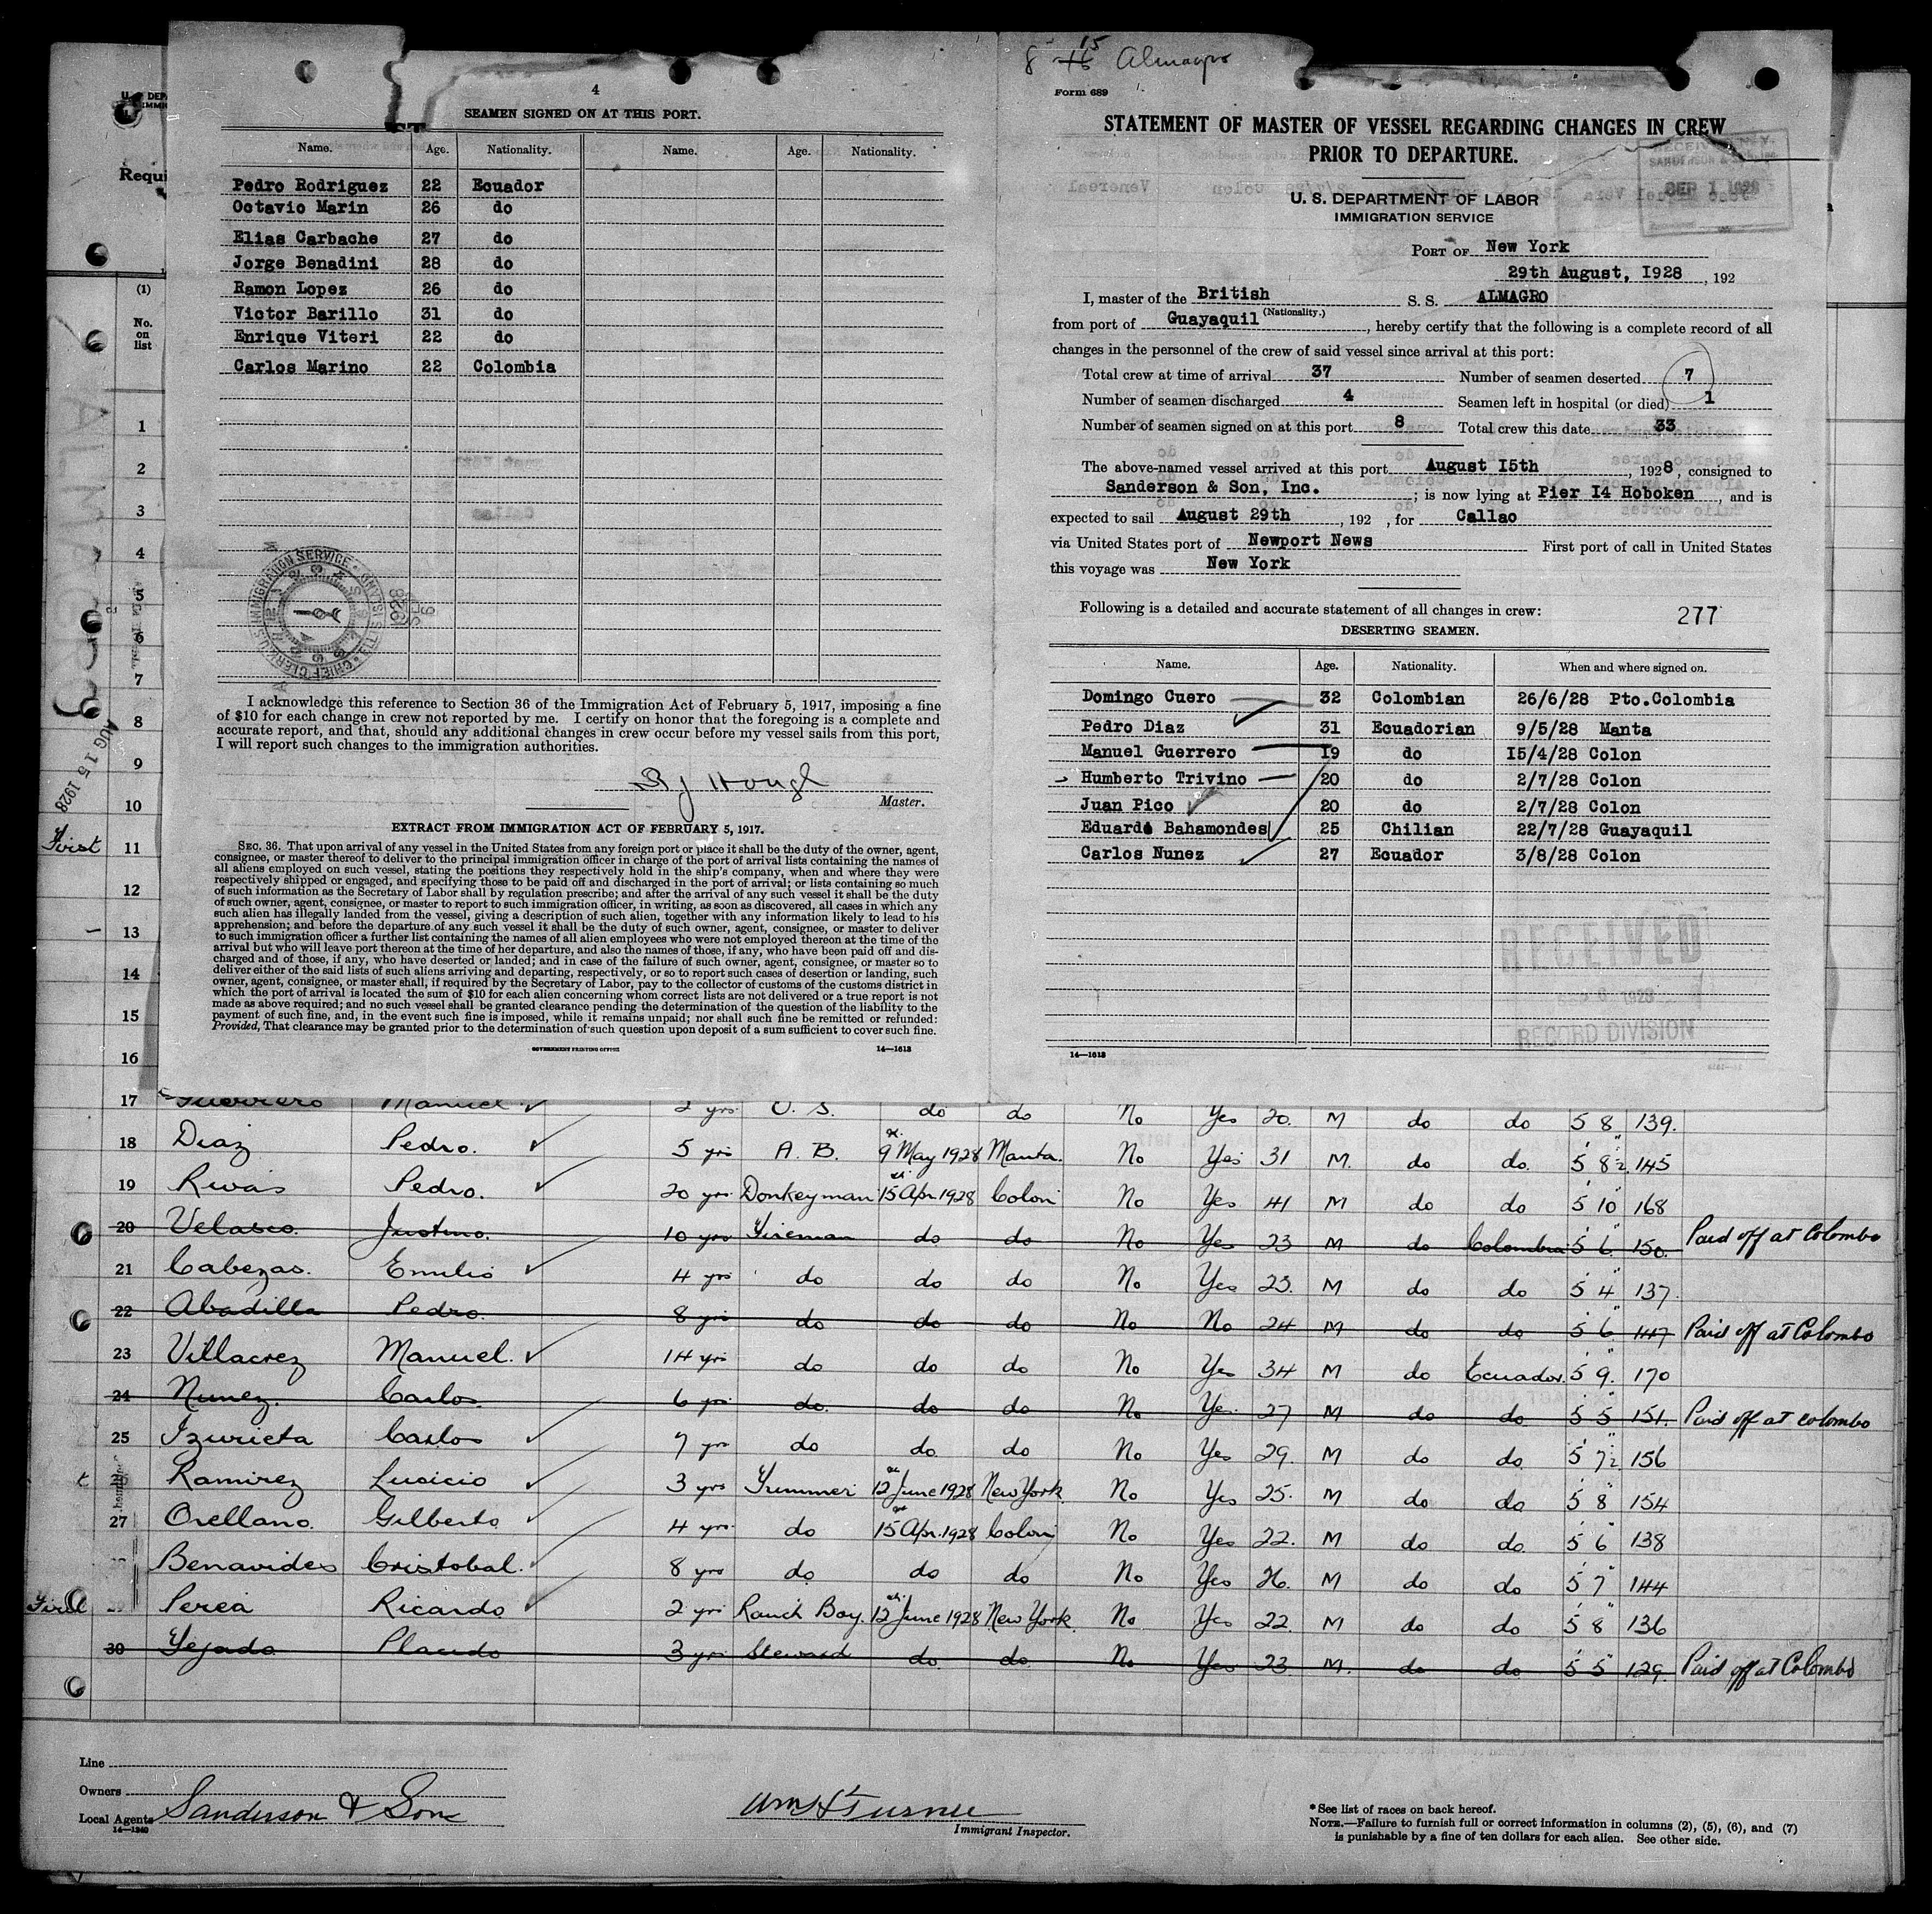 4
SEAMEN SIGNED ON AT THIS PORT.
Name. Age. Nationality. Name. Age. Nationality.
Pedro Rodriguez 22 Ecuador
Octavio Marin 26 do
Elias Carbache 27 do
Jorge Benadini 28 do
Ramon Lopez 26 do
Victor Barillo 31 do
Enrique Viteri 22 do
Carlos Marino 22 Colombia
I acknowledge this reference to Section 36 of the Immigration Act of February 5, 1917, imposing a fine
of $10 for each change in crew not reported by me. I certify on honor that the foregoing is a complete and
accurate report, and that, should any additional changes in crew occur before my vessel sails from this port,
I will report such changes to the immigration authorities.
Master.
EXTRACT FROM IMMIGRATION ACT OF FEBRUARY 5, 1917.
SEC. 36. That upon arrival of any vessel in the United States from any foreign port or place it shall be the duty of the owner, agent,
consignee, or master thereof to deliver to the principal immigration officer in charge of the port of arrival lists containing the names of
all aliens employed on such vessel, stating the positions they respectively hold in the ship's company, when and where they were
respectively shipped or engaged, and specifying those to be paid off and discharged in the port of arrival; or lists containing so much
of such information as the Secretary of Labor shall by regulation prescribe; and after the arrival of any such vessel it shall be the duty
of such owner, agent, consignee, or master to report to such immigration officer, in writing, as soon as discovered, all cases in which any
such alien has illegally landed from the vessel, giving a description of such alien, together with any information likely to lead to his
apprehension; and before the departure of any such vessel it shall be the duty of such owner, agent, consignee, or master to deliver
to such immigration officer a further list containing the names of all alien employees who were not employed thereon at the time of the
arrival but who will leave port thereon at the time of her departure, and also the names of those, if any, who have been paid off and dis-
charged and of those, if any, who have deserted or landed; and in case of the failure of such owner, agent, consignee, or master so to
deliver either of the said lists of such aliens arriving and departing, respectively, or so to report such cases of desertion or landing, such
owner, agent, consignee, or master shall, if required by the Secretary of Labor, pay to the collector of customs of the customs district in
which the port of arrival is located the sum of $10 for each alien concerning whom correct lists are not delivered or a true report is not
made as above required; and no such vessel shall be granted clearance pending the determination of the question of the liability to the
payment of such fine, and, in the event such fine is imposed, while it remains unpaid; nor shall such fine be remitted or refunded:
Provided, That clearance may be granted prior to the determination of such question upon deposit of a sum sufficient to cover such fine.
GOVERNMENT PRINTING OFFICE 14—1613
8 15 Almagro
Form 689
STATEMENT OF MASTER OF VESSEL REGARDING CHANGES IN CREW
PRIOR TO DEPARTURE.
U. S. DEPARTMENT OF LABOR
IMMIGRATION SERVICE
SEP 1 1928
PORT OF New York
29th August, 1928, 192
I, master of the British S. S. ALMAGRO
(Nationality.)
from port of Guayaquil, hereby certify that the following is a complete record of all
changes in the personnel of the crew of said vessel since arrival at this port:
Total crew at time of arrival 37 Number of seamen deserted 7
Number of seamen discharged 4 Seamen left in hospital (or died) 1
Number of seamen signed on at this port 8 Total crew this date 33
The above-named vessel arrived at this port August 15th, 1928, consigned to
Sanderson & Son, Inc.; is now lying at Pier 14 Hoboken, and is
expected to sail August 29th, 192 , for Callao
via United States port of Newport News First port of call in United States
this voyage was New York
Following is a detailed and accurate statement of all changes in crew: 277
DESERTING SEAMEN.
Name. Age. Nationality. When and where signed on.
Domingo Cuero 32 Colombian 26/6/28 Pto.Colombia
Pedro Diaz 31 Ecuadorian 9/5/28 Manta
Manuel Guerrero 19 do 15/4/28 Colon
Humberto Trivino 20 do 2/7/28 Colon
Juan Pico 20 do 2/7/28 Colon
Eduardo Bahamondes 25 Chilian 22/7/28 Guayaquil
Carlos Nunez 27 Ecuador 3/8/28 Colon
RECEIVED
1928
RECORD DIVISION
14—1613
Requi
(1)
No.
on
list
1
2
3
4
5
6
7
8
9
AUG 15 1928
10
First 11
12
13
14
15
16
17 Guerrero Manuel 2 yrs O. S. do do No Yes 20 M do do 5 8 139
18 Diaz Pedro. 5 yrs A. B. 9 May 1928 Manta. No Yes 31 M. do do. 5 8½ 145
19 Rivas Pedro. 20 yrs Donkeyman 15 Apr. 1928 Colon No Yes 41 M do do 5 10 168
20 Velasco Justino. 10 yrs Fireman do do No Yes 23 M do Colombia 5 6 150 Paid off at Colombo
21 Cabezas. Emilio 4 yrs do do do No Yes 23. M do do 5 4 137
22 Abadilla Pedro 8 yrs do do do No No 24 M do do 5 6 147 Paid off at Colombo
23 Villacrez Manuel. 14 yrs do do do No Yes 34 M do Ecuador. 5 9 170
24 Nunez. Carlos 6 yrs do do do No Yes 27 M do do 5 5 151 Paid off at colombo
25 Izurieta Carlos 7 yrs do do do No Yes 29. M do do 5 7½ 156
26 Ramirez Lucicio 3 yrs Trimmer 12 June 1928 New York No Yes 25. M do do 5 8 154
27 Orellano. Gilberto 4 yrs do 15 Apr. 1928 Colon No Yes 22. M do do 5 6 138
Benavides Cristobal. 8 yrs do do do No Yes 26. M do do 5 7 144
First 29 Perea Ricardo 2 yrs 12 June 1928 New York No Yes 22 M do do 5 8 136
30 Tejada Placido 3 yrs Steward do do No Yes 23 M. do do 5 5 129 Paid off at Colombo
Line
Owners
Local Agents Sanderson & Son
14—1240
Wm H Turner
Immigrant Inspector.
*See list of races on back hereof.
NOTE.—Failure to furnish full or correct information in columns (2), (5), (6), and (7)
is punishable by a fine of ten dollars for each alien. See other side.